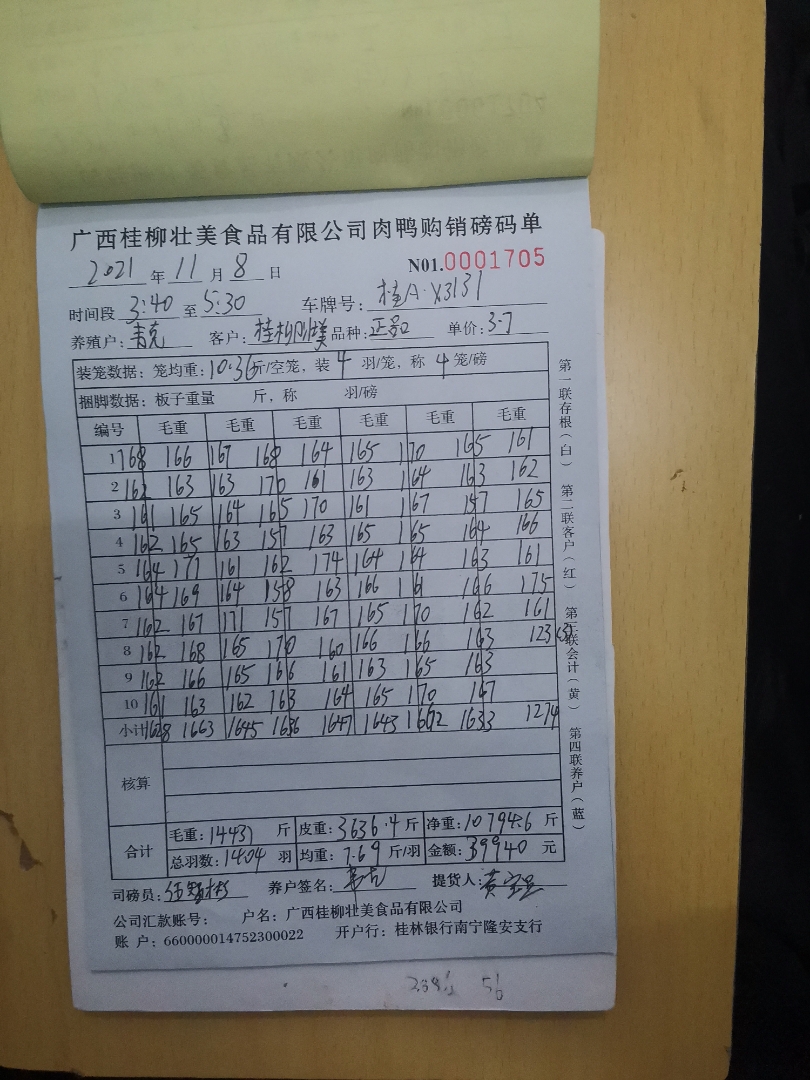 广西桂柳壮美食品有限公司肉鸭购销磅码单
2021 年 11 月 8 日 N01.0001705
时间段 3:40 至 5:30 车牌号: 桂A·X3131
养殖户: 客户: 桂柳 品种: 单价: 3.7
装笼数据: 笼均重: 10.36 斤/空笼, 装 4 羽/笼, 称 4 笼/磅
捆脚数据: 板子重量 斤, 称 羽/磅
编号 毛重 毛重 毛重 毛重 毛重 毛重
1 168 166 167 168 164 165 170 165 161
2 162 163 163 170 161 163 164 163 162
3 161 165 164 165 170 161 167 157 165
4 162 165 163 157 163 165 165 164 166
5 164 171 161 162 174 164 164 163 161
6 164 169 164 158 163 166 161 166 175
7 162 167 171 157 167 165 170 162 161
8 162 168 165 170 160 166 166 163 123 (3)
9 162 166 165 166 161 163 165 163
10 161 163 162 163 164 165 170 167
小计 1628 1663 1645 1636 1647 1643 1662 1633 1274
核算
合计 毛重: 14431 斤 皮重: 3636.4 斤 净重: 10794.6 斤
总羽数: 1404 羽 均重: 7.69 斤/羽 金额: 39940 元
司磅员: 养户签名: 提货人:
公司汇款账号: 户名: 广西桂柳壮美食品有限公司
账 户: 660000014752300022 开户行: 桂林银行南宁隆安支行
第一联存根(白) 第二联客户(红) 第三联会计(黄) 第四联养户(蓝)